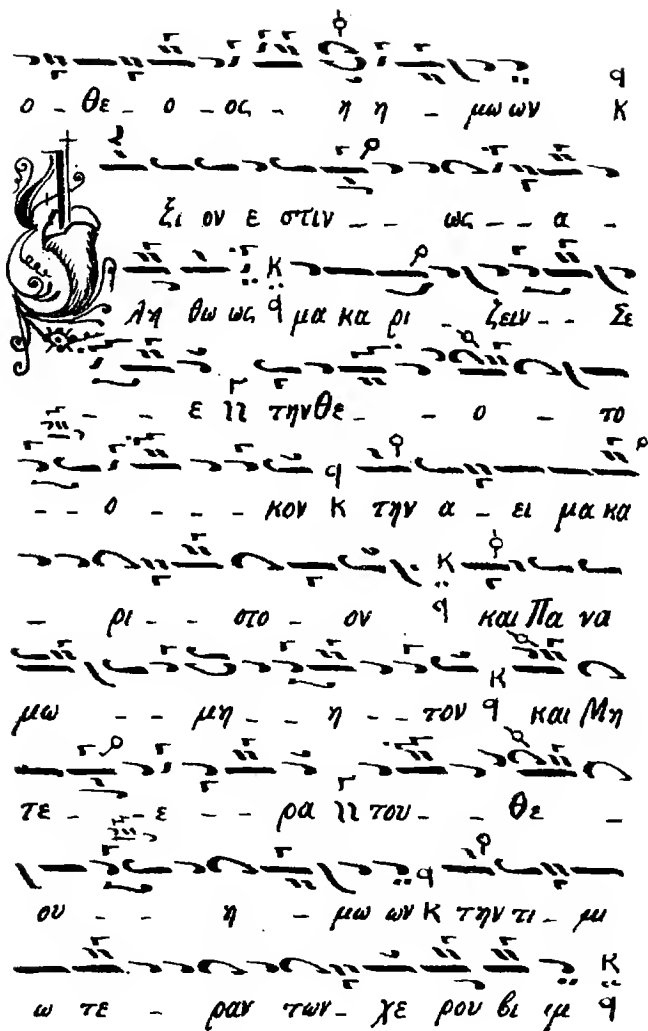 ο - θε - ο - ος - η η - μω ων Κ
ξι ον ε στιν - - ως - - α -
λη θω ως μα κα ρι - ζειν - - Σε
- - - ε την θε - - ο - το
- - ο - - - κον Κ την α - ει μα κα
- ρι - - στο - ον και Πα να
μω - - μη - - η - - τον και Μη
τε - - ε - - - ρα του - - θε -
ου - - η - μω ων Κ την τι - μι
ω τε - ραν των - χε ρου βι ιμ